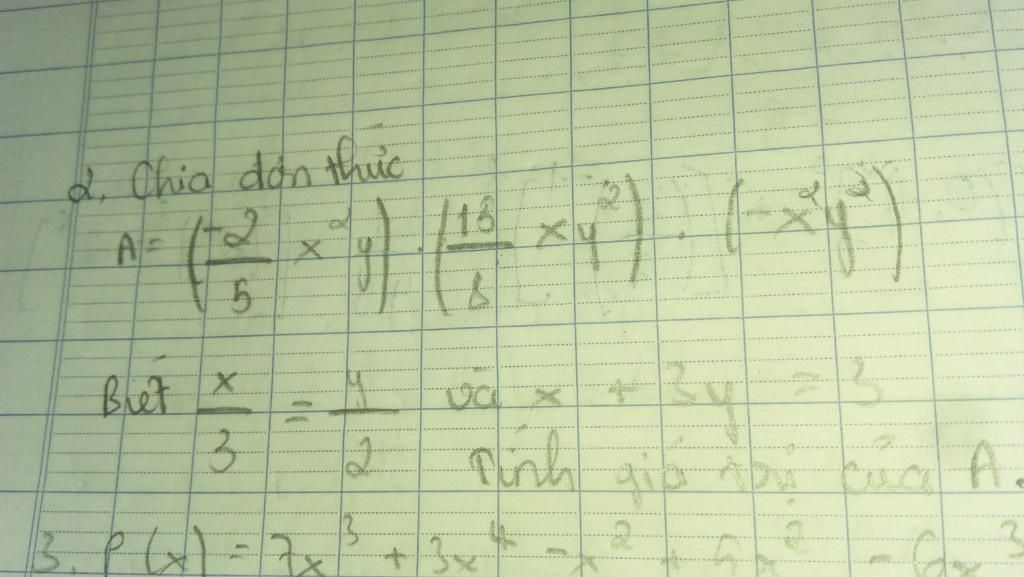 2. Chia đơn thức
A = (-2/5 x²y) . (15/8 xy²) . (-x²y²)
Biết x/3 = y/2 và x + 3y = 3
Tính giá trị của A.
3. P(x) = 7x³ + 3x⁴ - x² + 5x² - 6x³